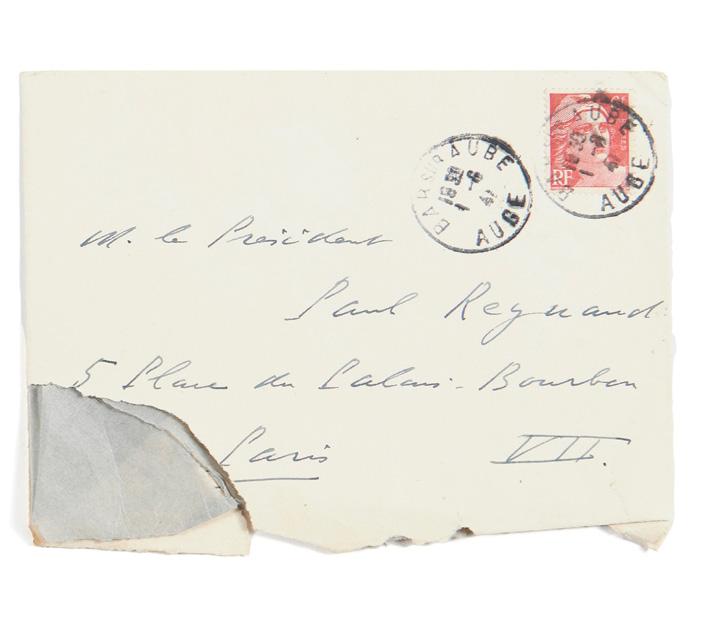 BAR SUR AUBE
18 30
1 - 6
4
AUBE
AUBE
18 30
1 - 6
4
AUBE
RF
M. le President
Paul Reynaud
5 Place du Palais-Bourbon
Paris VII.